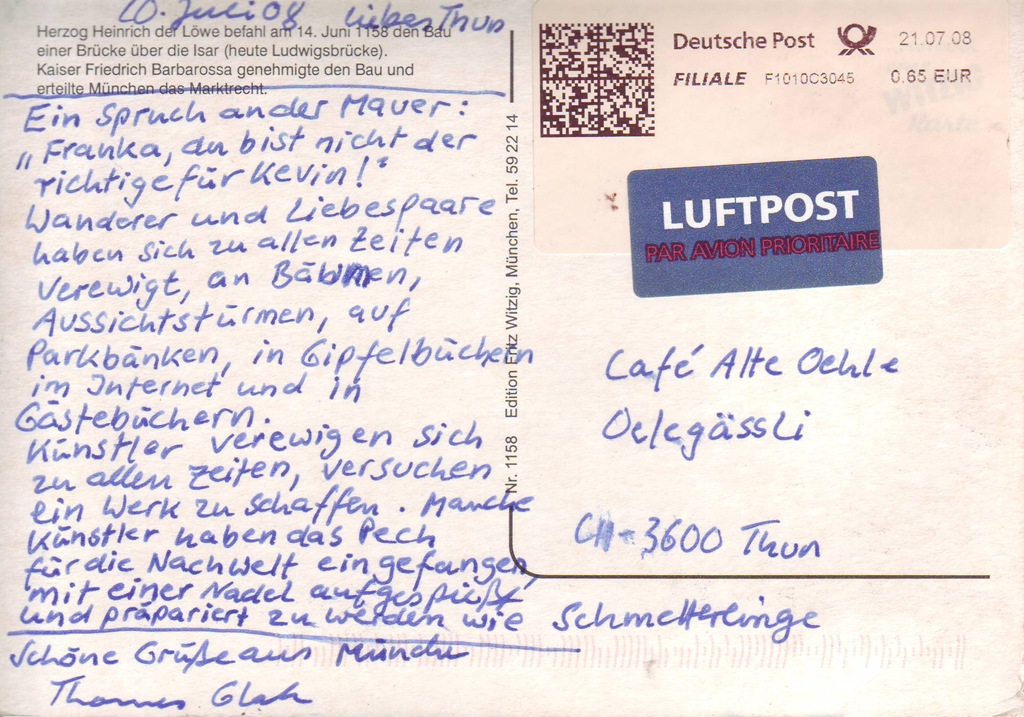 20. Juli 08 lieber Thun
Herzog Heinrich der Löwe befahl am 14. Juni 1158 den Bau
einer Brücke über die Isar (heute Ludwigsbrücke).
Kaiser Friedrich Barbarossa genehmigte den Bau und
erteilte München das Marktrecht.
Ein Spruch an der Mauer:
„Franka, du bist nicht der
richtige für Kevin!"
Wanderer und Liebespaare
haben sich zu allen Zeiten
verewigt, an Bäumen,
Aussichtstürmen, auf
Parkbänken, in Gipfelbüchern
im Internet und in
Gästebüchern.
Künstler verewigen sich
zu allen Zeiten, versuchen
ein Werk zu schaffen. Manche
Künstler haben das Pech
für die Nachwelt eingefangen,
mit einer Nadel aufgespießt
und präpariert zu werden wie Schmetterlinge
Schöne Grüße aus München
Thomas
Nr. 1158 Edition Fritz Witzig, München, Tel. 59 22 14
Deutsche Post 21.07.08
FILIALE F1010C3045 0.65 EUR
LUFTPOST
PAR AVION PRIORITAIRE
Café Alte Oehle
Oelegässli
CH-3600 Thun